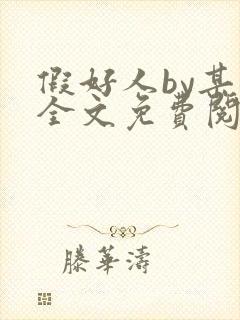 假好人by甚
全文免費閱
滕華濤